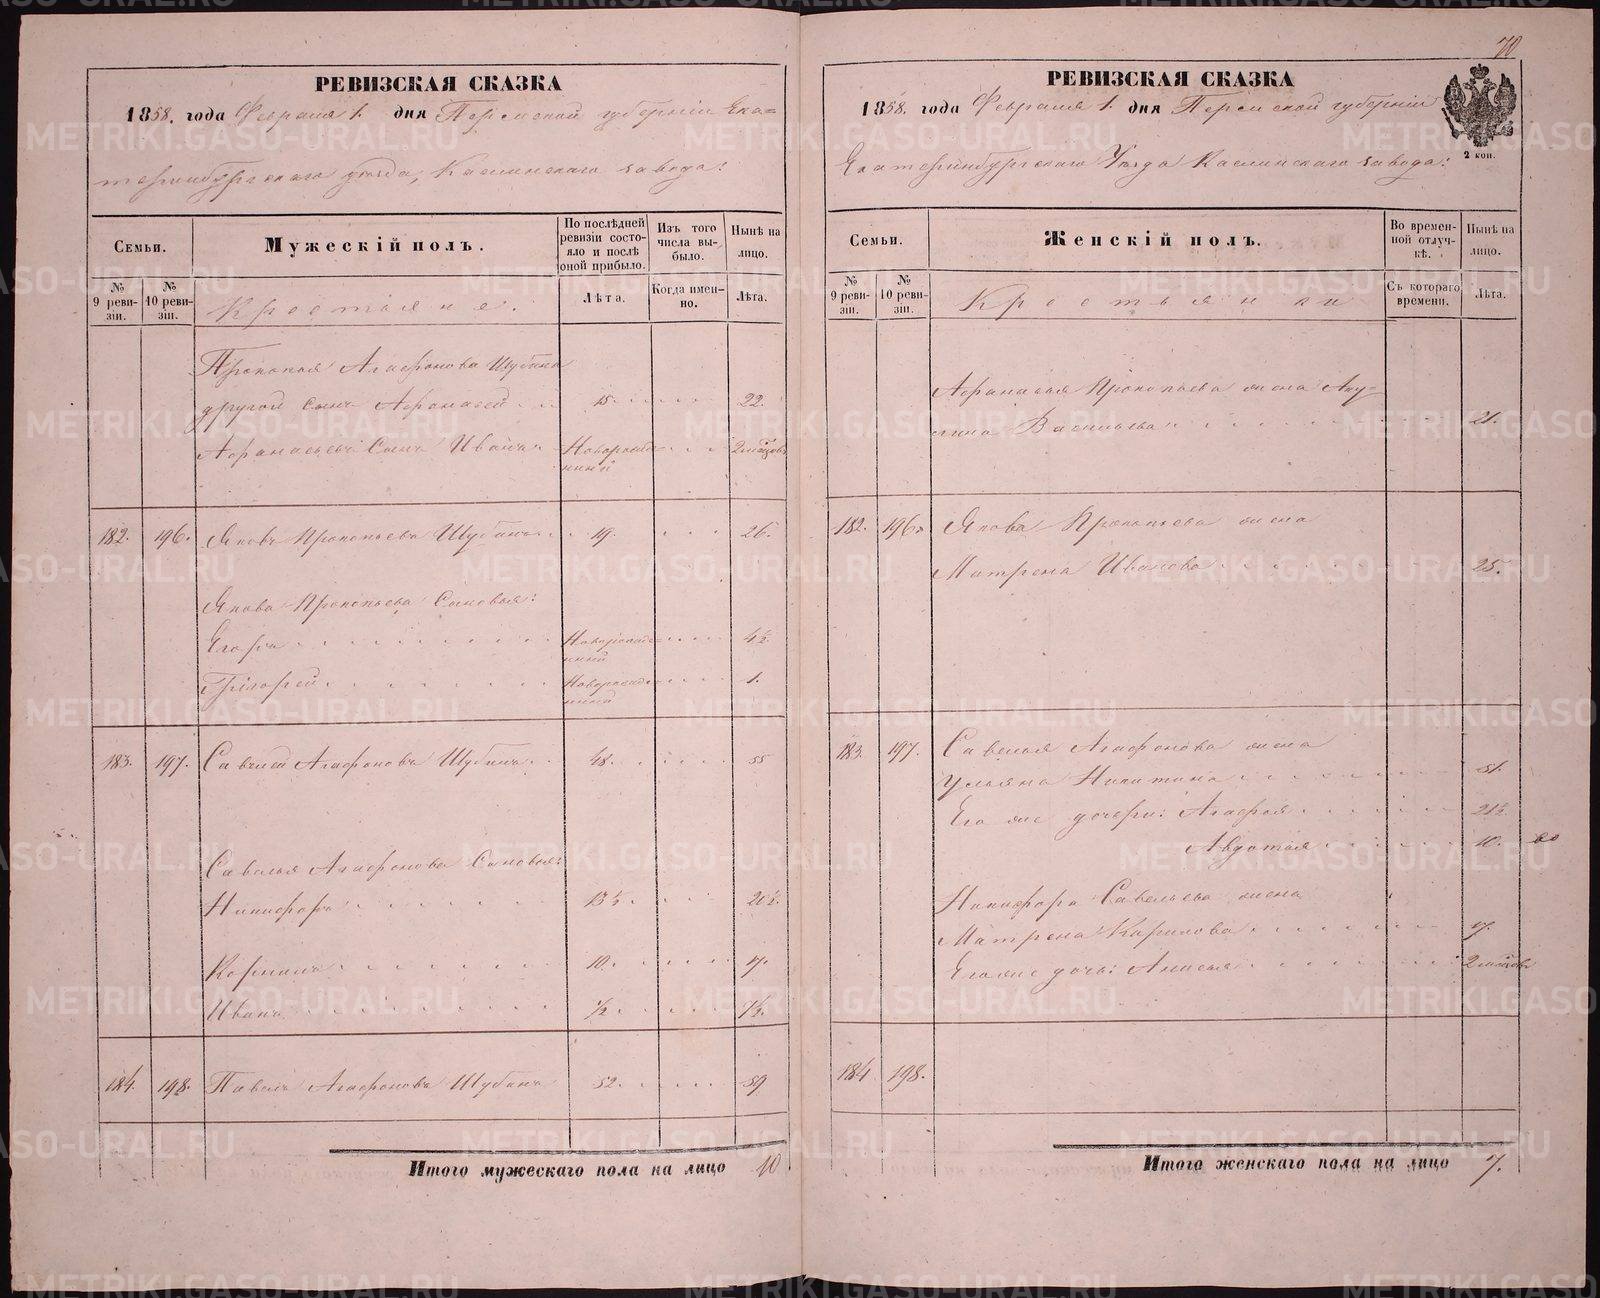 РЕВИЗСКАЯ СКАЗКА
1858. года Февраля 1. дня Пермской губерніи Ека=
теринбургскаго уѣзда, Каслинскаго завода:
Семьи.
Мужескій полъ.
По послѣдней ревизіи состояло и послѣ оной прибыло.
Изъ того числа выбыло.
Нынѣ на лицо.
№ 9 ревизіи.
№ 10 ревизіи.
Крестьяне.
Лѣта.
Когда именно.
Лѣта.
Прокопья Агафонова Шубина
другой сынъ Афанасей 15 22.
Афанасьевъ Сынъ Иванъ Новорожденный 2 мѣсяцовъ
182. 196. Яковъ Прокопьевъ Шубинъ 19. 26.
Якова Прокопьева Сыновья:
Егоръ Новорожденный 4½
Григорей Новорожденный 1.
183. 197. Савелій Агафоновъ Шубинъ 48. 55
Савелья Агафонова Сыновья:
Никифоръ 13½. 20½.
Иванъ ½ 7½.
184. 198. Павелъ Агафоновъ Шубинъ 52. 59
Итого мужескаго пола на лицо 10
70
РЕВИЗСКАЯ СКАЗКА
1858. года Февраля 1. дня Пермской губерніи
2 коп.
Екатеринбургскаго Уѣзда Каслинскаго завода:
Семьи.
Женскій полъ.
Во временной отлучкѣ.
Нынѣ на лицо.
№ 9 ревизіи.
№ 10 ревизіи.
Крестьянки
Съ котораго времени.
Лѣта.
Афанасья Прокопьева жена Аку=
лина Васильева 21.
182. 196. Якова Прокопьева жена
Матрена Иванова 25.
183. 197. Савелья Агафонова жена
Ульяна Никитина 51.
Его же дочери: Агафья 21½
Авдотья 10.
Никифора Савельева жена
Матрена
Его же дочь: Анисья 2 мѣсяцовъ
184 198.
Итого женскаго пола на лицо 7.
METRIKI.GASO-URAL.RU